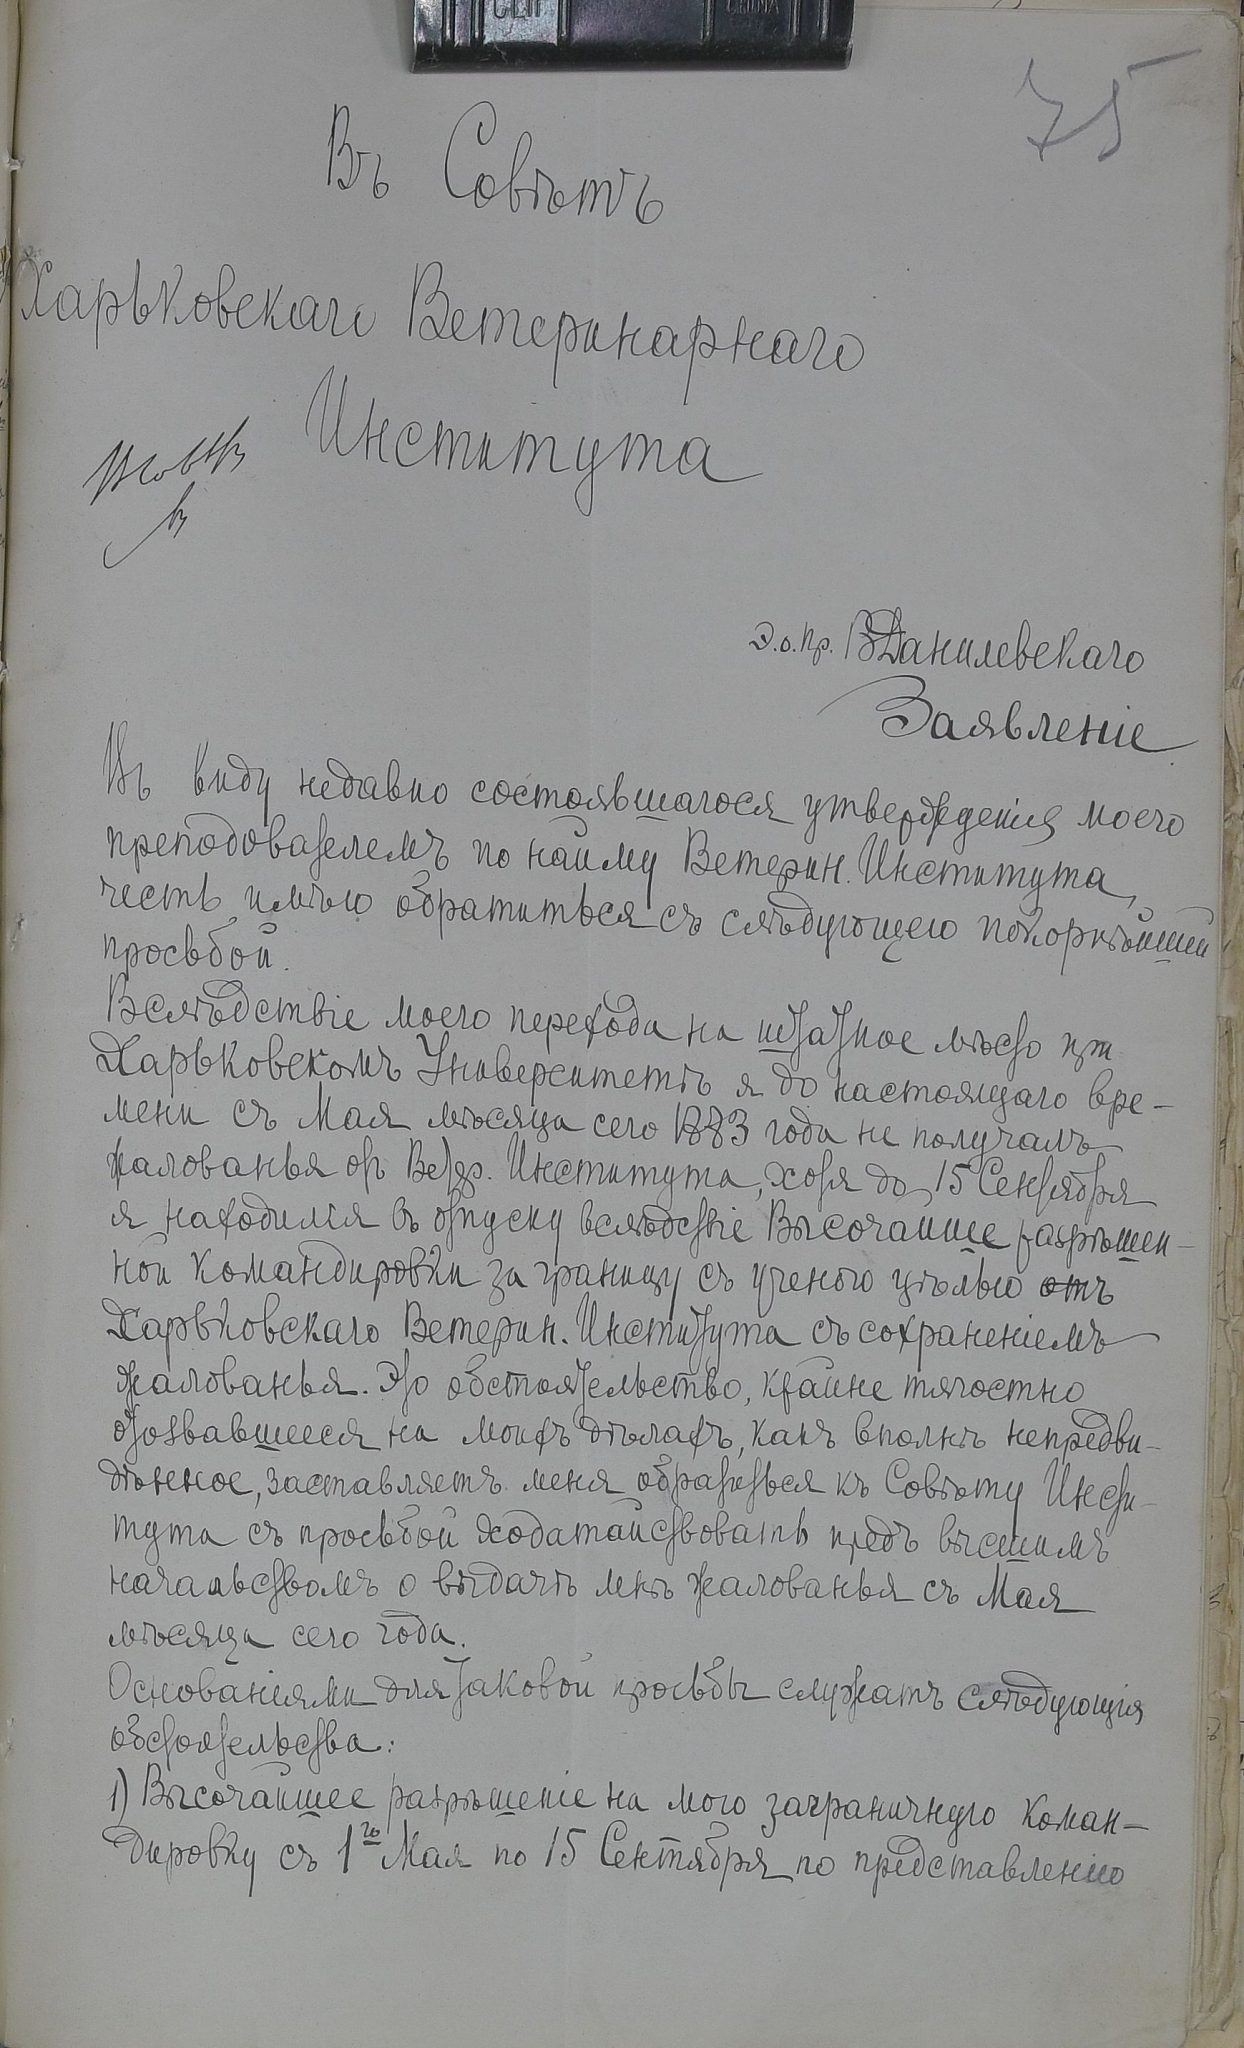 75
Въ Совѣтъ
Харьковскаго Ветеринарнаго
Института
Э.о.пр. В Данилевскаго
Заявленіе
Въ виду недавно состоявшагося утвержденія моего
преподователемъ по найму Ветерин. Института,
честь имѣю обратиться съ слѣдующею покорнѣйшей
просьбой.
Вслѣдствіе моего перехода на штатное мѣсто при
Харьковскомъ Университетѣ я до настоящаго вре-
мени съ Мая мѣсяца сего 1883 года не получалъ
жалованья отъ Ветер. Института, хотя до 15 Сентября
я находился въ отпуску вслѣдствіе Высочайше разрѣшен-
ной командировки за границу съ ученою цѣлью отъ
Харьковскаго Ветерин. Института съ сохраненіемъ
жалованья. Это обстоятельство, крайне тягостно
отозвавшееся на моихъ дѣлахъ, какъ вполнѣ непредви-
дѣнное, заставляетъ меня обратиться къ Совѣту Инсти-
тута съ просьбой ходатайствовать предъ высшимъ
начальствомъ о выдачѣ мнѣ жалованья съ Мая
мѣсяца сего года.
Основаніями для таковой просьбы служатъ слѣдующія
обстоятельства:
1) Высочайшее разрѣшеніе на мою заграничную коман-
дировку съ 1го Мая по 15 Сентября по представленію